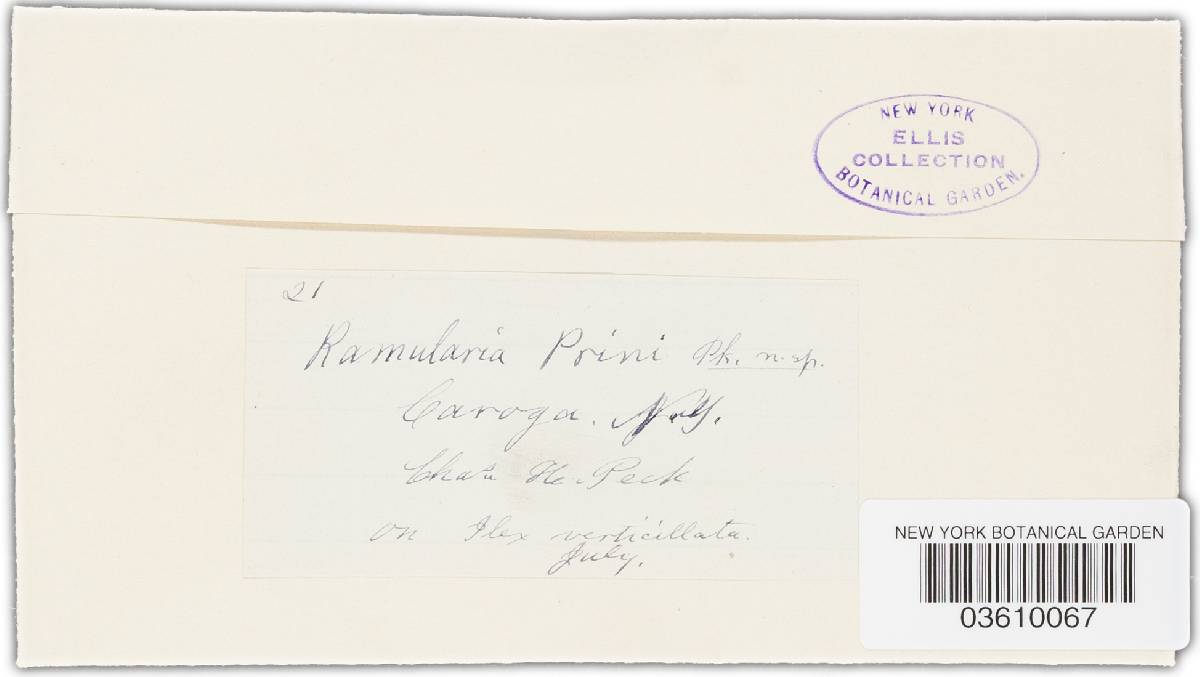 NEW YORK
ELLIS
COLLECTION
BOTANICAL GARDEN.
21
Ramularia Prini Pk. n. sp.
Caroga. N.Y.
Chas H. Peck
on Ilex verticillata.
July.
NEW YORK BOTANICAL GARDEN
03610067